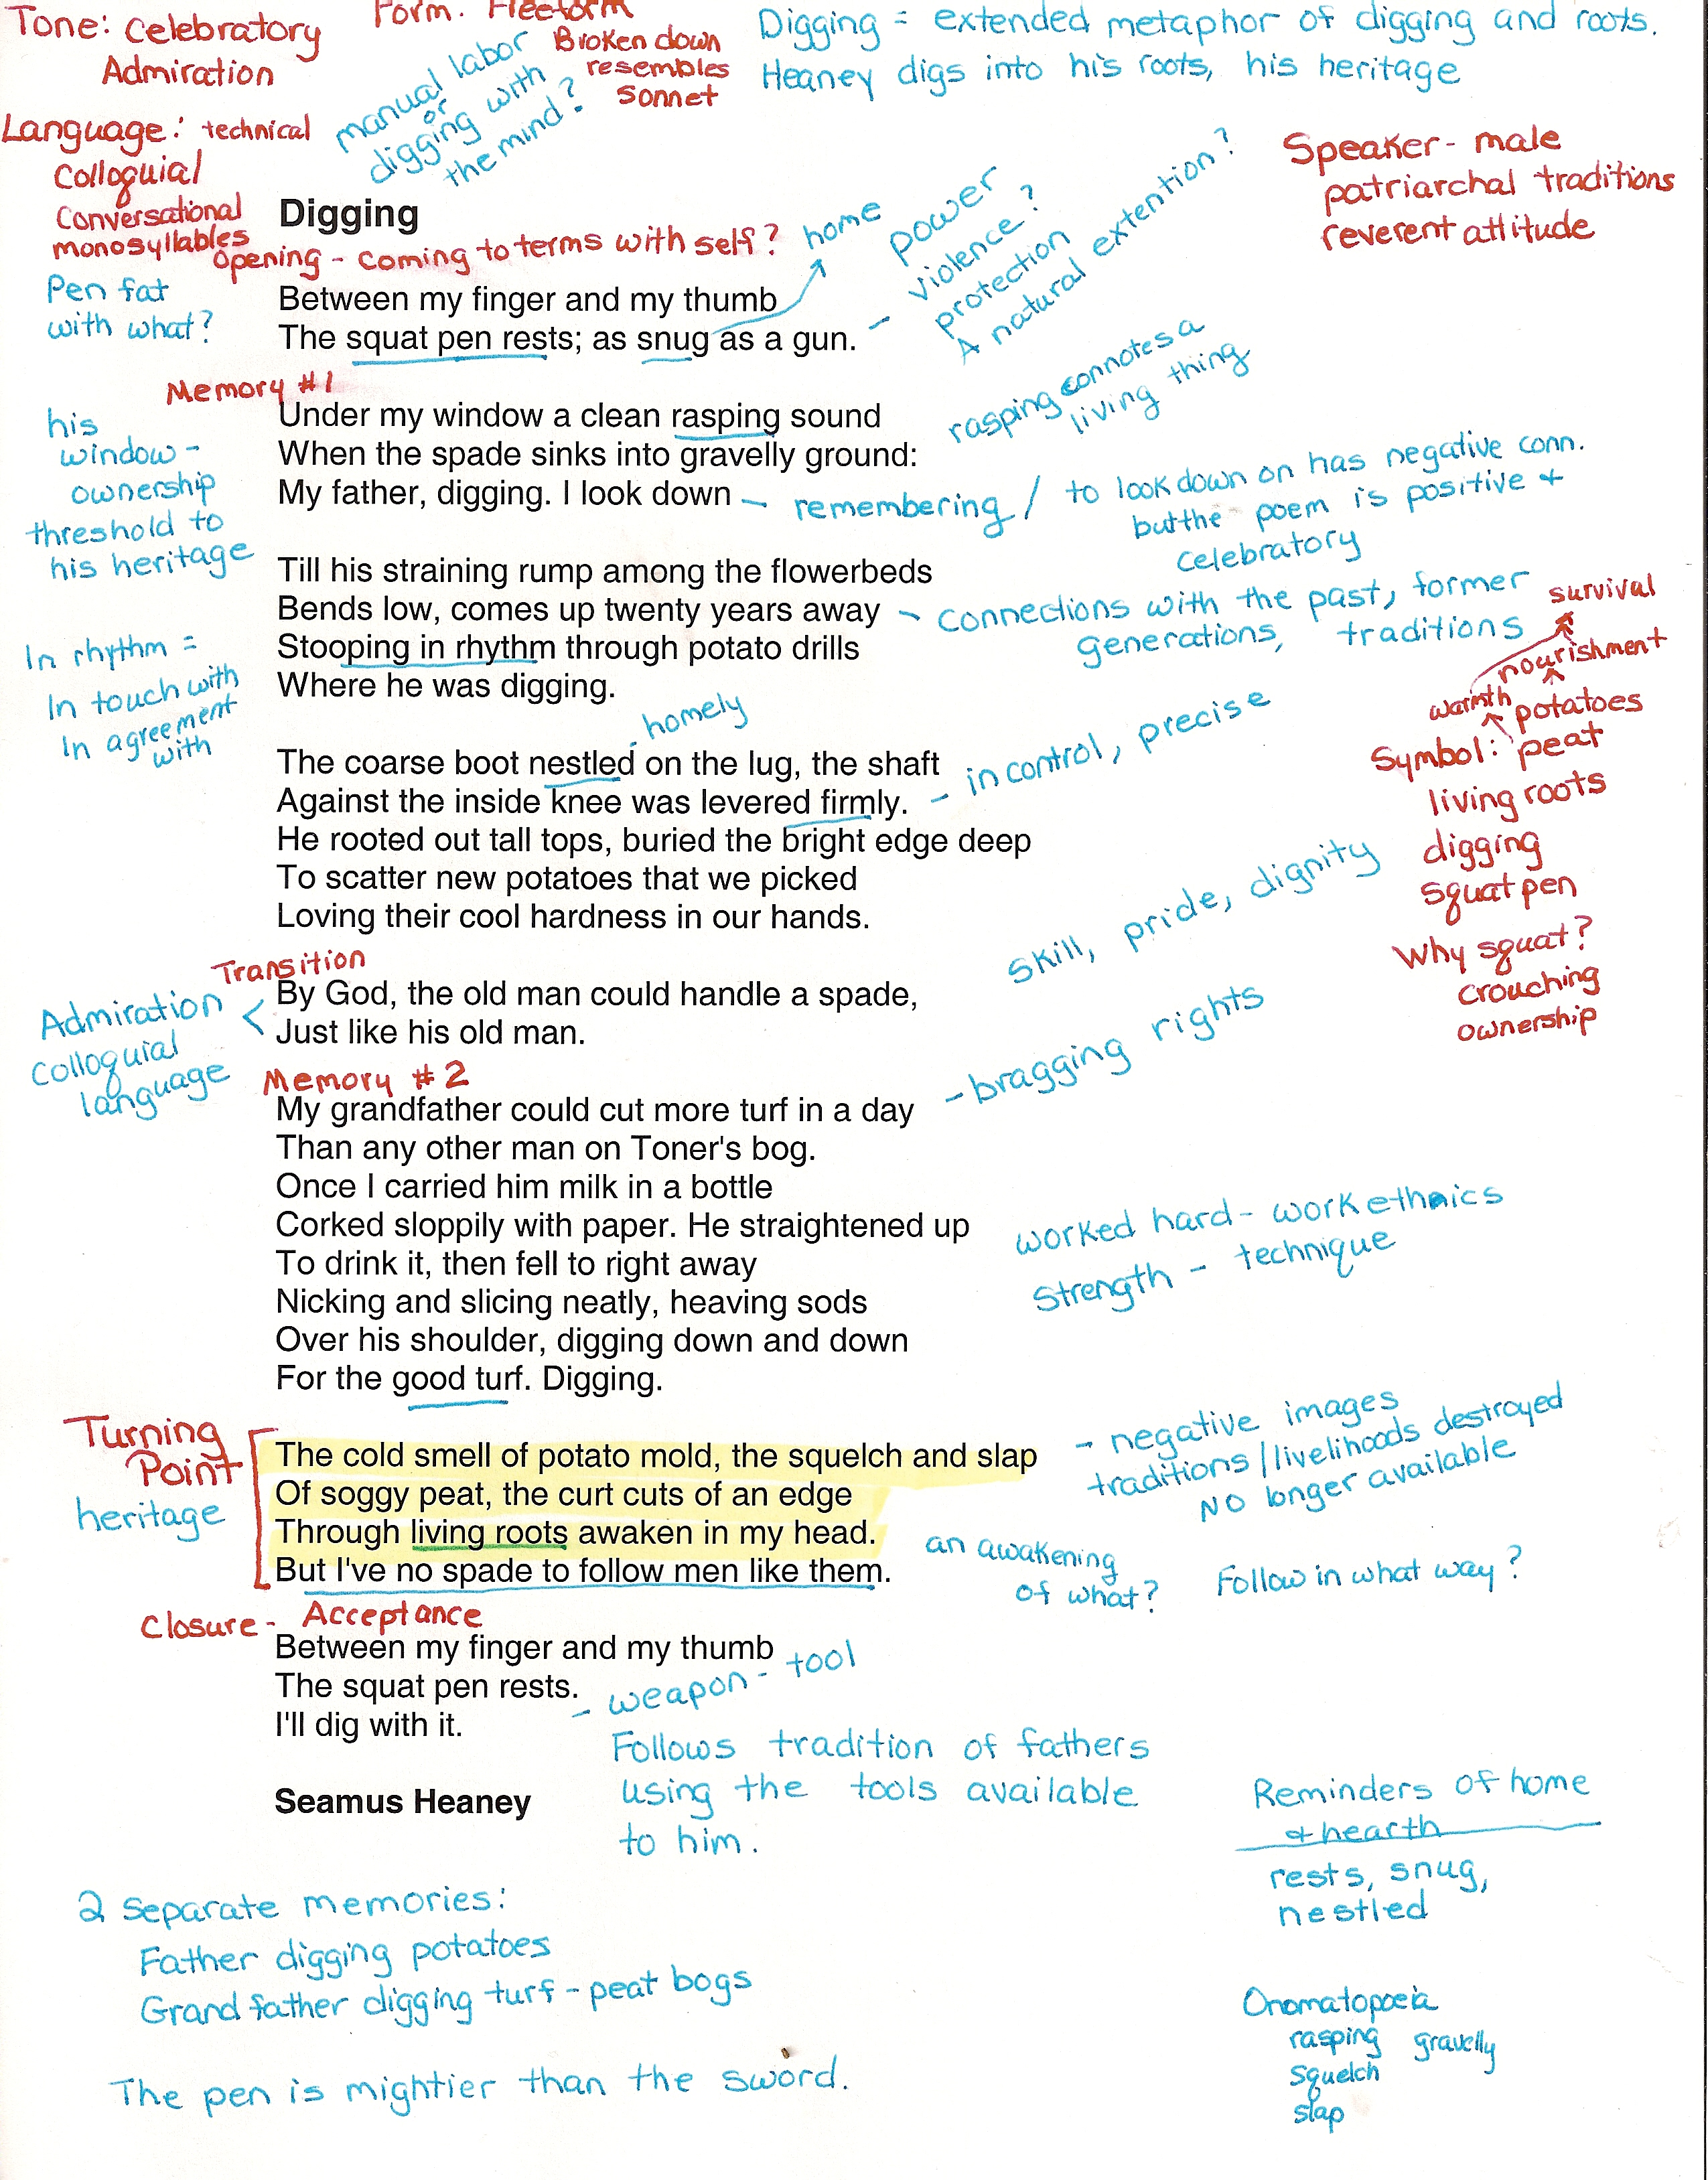 Tone: Celebratory
Admiration
Form: Freeform
Broken down
resembles
Sonnet
Digging = extended metaphor of digging and roots.
Heaney digs into his roots, his heritage
manual labor
or
digging with
the mind?
Language: technical
Colloquial
Conversational
monosyllables
Speaker - male
patriarchal traditions
reverent attitude
Digging
opening - coming to terms with self?
home
power
violence?
protection
A natural extention?
Pen fat
with what?
Between my finger and my thumb
The squat pen rests; as snug as a gun.
Memory #1
his
window -
ownership
threshold to
his heritage
Under my window a clean rasping sound
When the spade sinks into gravelly ground:
My father, digging. I look down
rasping connotes a
living thing
- remembering / to look down on has negative conn.
but the poem is positive +
celebratory
Till his straining rump among the flowerbeds
Bends low, comes up twenty years away
Stooping in rhythm through potato drills
Where he was digging.
- connections with the past, former
generations, traditions
In rhythm =
In touch with
In agreement
with
survival
nourishment
warmth
potatoes
Symbol: peat
living roots
digging
squat pen
Why squat?
crouching
ownership
homely
The coarse boot nestled on the lug, the shaft
Against the inside knee was levered firmly.
He rooted out tall tops, buried the bright edge deep
To scatter new potatoes that we picked
Loving their cool hardness in our hands.
- in control, precise
skill, pride, dignity
Transition
Admiration <
Colloquial
language
By God, the old man could handle a spade,
Just like his old man.
Memory #2
- bragging rights
My grandfather could cut more turf in a day
Than any other man on Toner's bog.
Once I carried him milk in a bottle
Corked sloppily with paper. He straightened up
To drink it, then fell to right away
Nicking and slicing neatly, heaving sods
Over his shoulder, digging down and down
For the good turf. Digging.
worked hard - work ethnics
Strength - technique
Turning
Point
heritage
The cold smell of potato mold, the squelch and slap
Of soggy peat, the curt cuts of an edge
Through living roots awaken in my head.
But I've no spade to follow men like them.
- negative images
traditions/livelihoods destroyed
No longer available
an awakening
of what?
Follow in what way?
Closure - Acceptance
Between my finger and my thumb
The squat pen rests.
I'll dig with it.
- weapon - tool
Follows tradition of fathers
using the tools available
to him.
Seamus Heaney
Reminders of home
+ hearth
rests, snug,
nestled
2 separate memories:
Father digging potatoes
Grandfather digging turf - peat bogs
Onomatopoeia
rasping gravelly
squelch
slap
The pen is mightier than the sword.